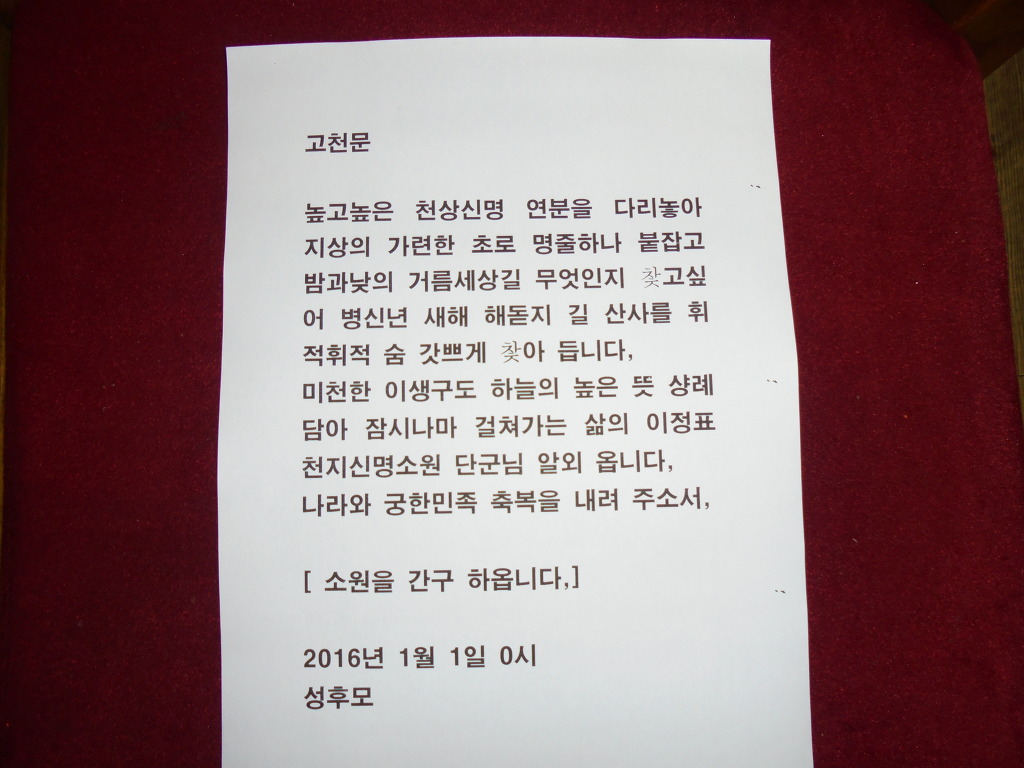 고천문
높고높은 천상신명 연분을 다리놓아
지상의 가련한 초로 명줄하나 붙잡고
밤과낮의 거름세상길 무엇인지 찾고싶
어 병신년 새해 해돋지 길 산사를 휘
적휘적 숨 갓쁘게 찾아 듭니다,
미천한 이생구도 하늘의 높은 뜻 샹례
담아 잠시나마 걸쳐가는 삶의 이정표
천지신명소원 단군님 알외 옵니다,
나라와 궁한민족 축복을 내려 주소서,
[ 소원을 간구 하옵니다,]
2016년 1월 1일 0시
성후모